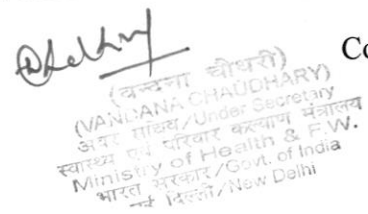 Co
(वन्दना चौधरी)
(VANDANA CHAUDHARY)
अवर सचिव/Under Secretary
स्वास्थ्य एवं परिवार कल्याण मंत्रालय
Ministry of Health & F.W.
भारत सरकार/Govt. of India
नई दिल्ली/New Delhi